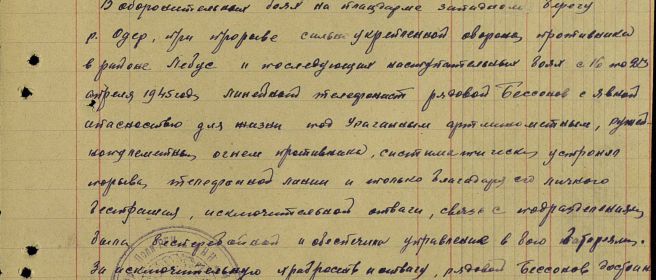 В оборонительных боях на плацдарме западном берегу
р. Одер, при прорыве сильно укрепленной обороны противника
в районе Лебус и последующих наступательных боях с 16 по
апреля 1945 года, линейный телефонист рядовой Бессонов с явной
опасностью для жизни под ураганным артминометным, ружей-
нопулеметным огнем противника, систематически устранял
порывы телефонной линии и только благодаря его личного
бесстрашия, исключительной отваги, связь с подразделениями
была бесперебойной и обеспечила управление в бою батареям.
За исключительную храбрость и отвагу, рядовой Бессонов достоин